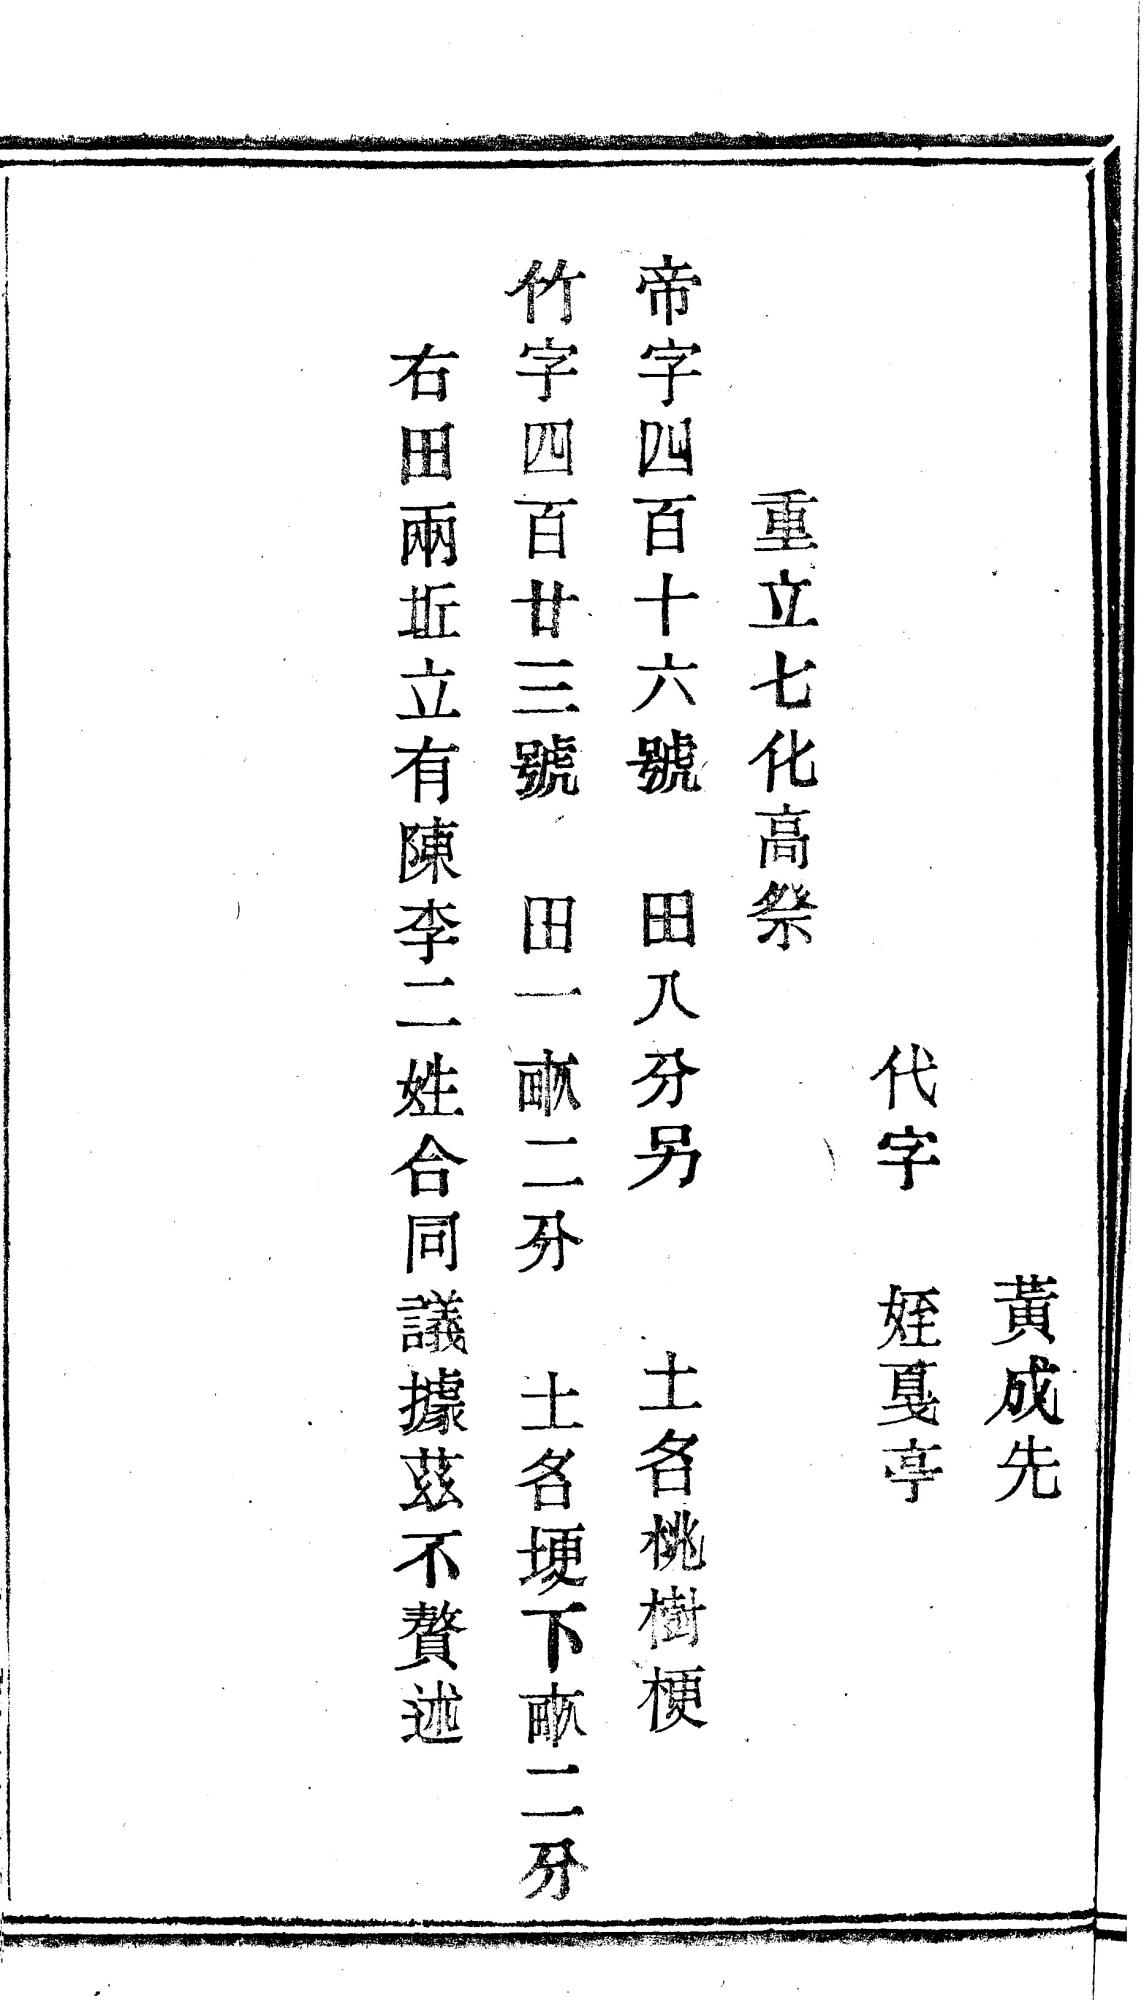 黃成先
代字　姪戛亭
重立七化高祭
帝字四百十六號　田八分另　土名桃樹梗
竹字四百廿三號　田一畝二分　土名埂下畝二分
右田兩坵立有陳李二姓合同議據茲不贅述